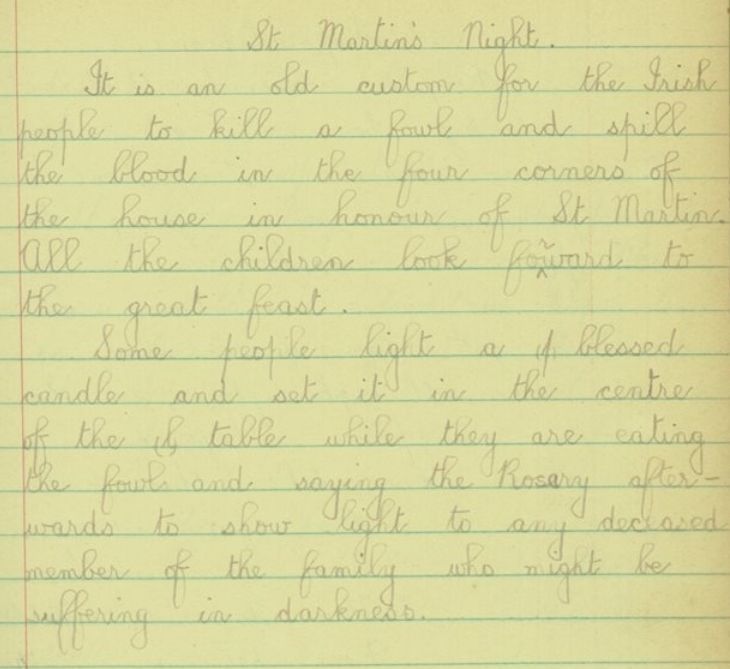 St Martin's Night.
It is an old custom for the Irish
people to kill a fowl and spill
the blood in the four corners of
the house in honour of St Martin.
All the children look forward to
the great feast.
Some people light a blessed
candle and set it in the centre
of the table while they are eating
the fowl and saying the Rosary after-
wards to show light to any deceased
member of the family who might be
suffering in darkness.